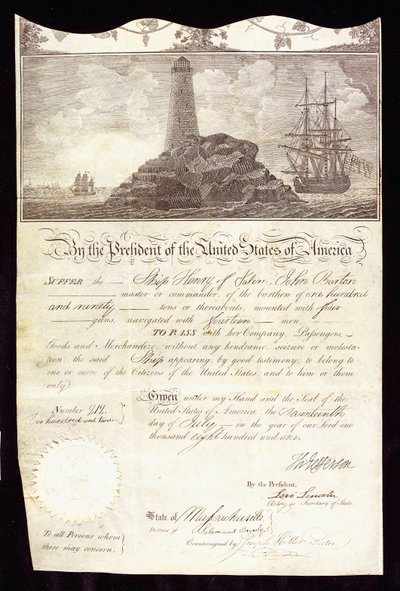 By the President of the United States of America
SUFFER the Ship Henry of Salem, John Barton
master or commander, of the burthen of one hundred
and ninety tons or thereabouts, mounted with four
guns, navigated with fourteen men,
TO PASS with her Company, Passengers,
Goods and Merchandize, without any hindrance, seizure or molesta-
tion: the said Ship appearing by good testimony, to belong to
one or more of the Citizens of the United States, and to him or them
only.
Given under my Hand and the Seal of the
United States of America, the Seventeenth
day of July in the year of our Lord one
thousand eight hundred and one.
Number
hundred and two
Th Jefferson
By the President,
Levi Lincoln
Acting as Secretary of State.
State of Massachusetts
District of Salem and Beverly
Countersigned by Joseph Hiller
To all Persons whom
these may concern.